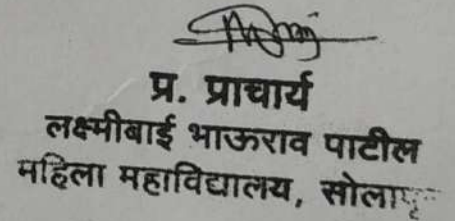 प्र. प्राचार्य
लक्ष्मीबाई भाऊराव पाटील
महिला महाविद्यालय, सोलापूर